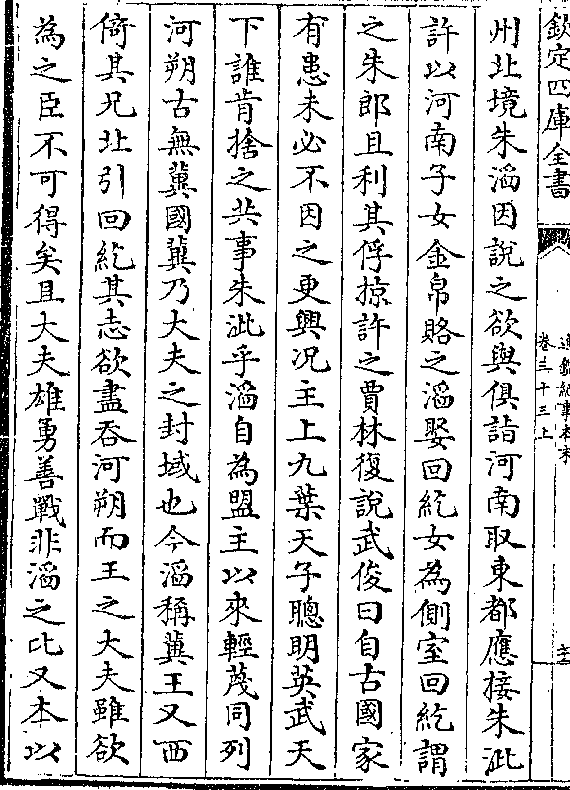 欽定四庫全書
通鑑紀事本末
卷三十三上
州北境朱滔因說之欲與俱詣河南取東都應接朱泚
許以河南子女金帛賂之滔娶回紇女為側室回紇謂
之朱郎且利其俘掠許之賈林復說武俊曰自古國家
有患未必不因之更興況主上九葉天子聰明英武天
下誰肯捨之共事朱泚乎滔自為盟主以來輕蔑同列
河朔古無冀國冀乃大夫之封域也今滔稱冀王又西
倚其兄北引回紇其志欲盡吞河朔而王之大夫雖欲
為之臣不可得矣且大夫雄勇善戰非滔之比又本以